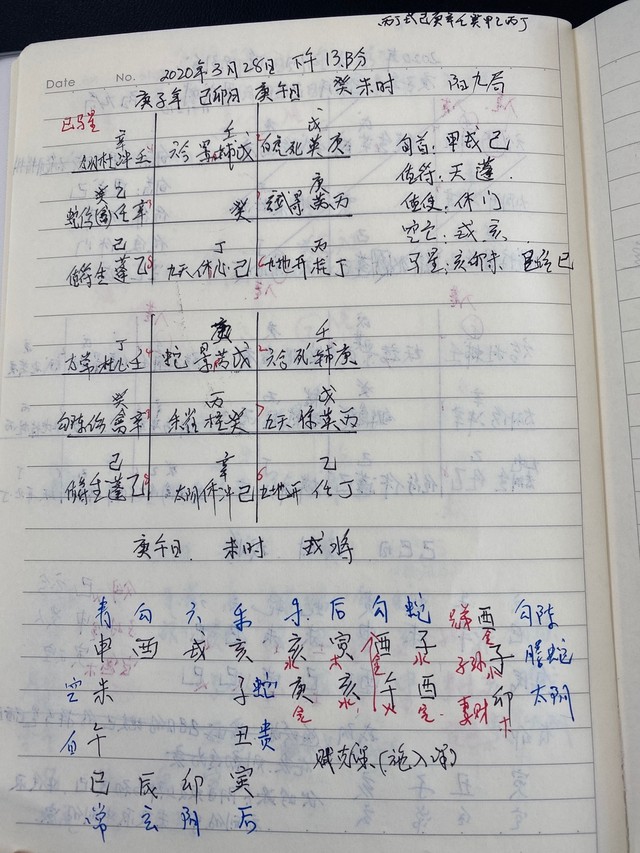 丙丁戊己庚辛壬癸甲乙丙丁
Date No. 2020年3月28日 下午13.13分
庚子年 己卯月 庚午日 癸未时 阳九局
辛 壬 戊
太阴杜冲壬 六合景辅戊 白虎死英庚 旬首:甲戌己
癸乙 庚 值符:天蓬
癸 值使:休门
己 丁 丙 空亡:戌亥
值符生蓬乙8 九天休心己 九地开柱丁 马星:亥卯未
丁 庚 壬
蛇景芮戊 六合死辅庚
癸 丙 戊
勾陈伤禽辛 朱雀柱癸 九天惊英丙
己 辛 乙
值符生蓬乙8 太阴休冲己 九地开任丁
庚午日 未时 戌将
青 勾 六 朱 朱 后 勾 蛇 酉 勾陈
申 酉 戌 亥 亥 寅 酉 子 子 螣蛇
空 未 子 蛇 庚 亥 午 酉 妻财 卯 太阴
白 午 丑 贵
巳 辰 卯 寅
常 玄 阴 后